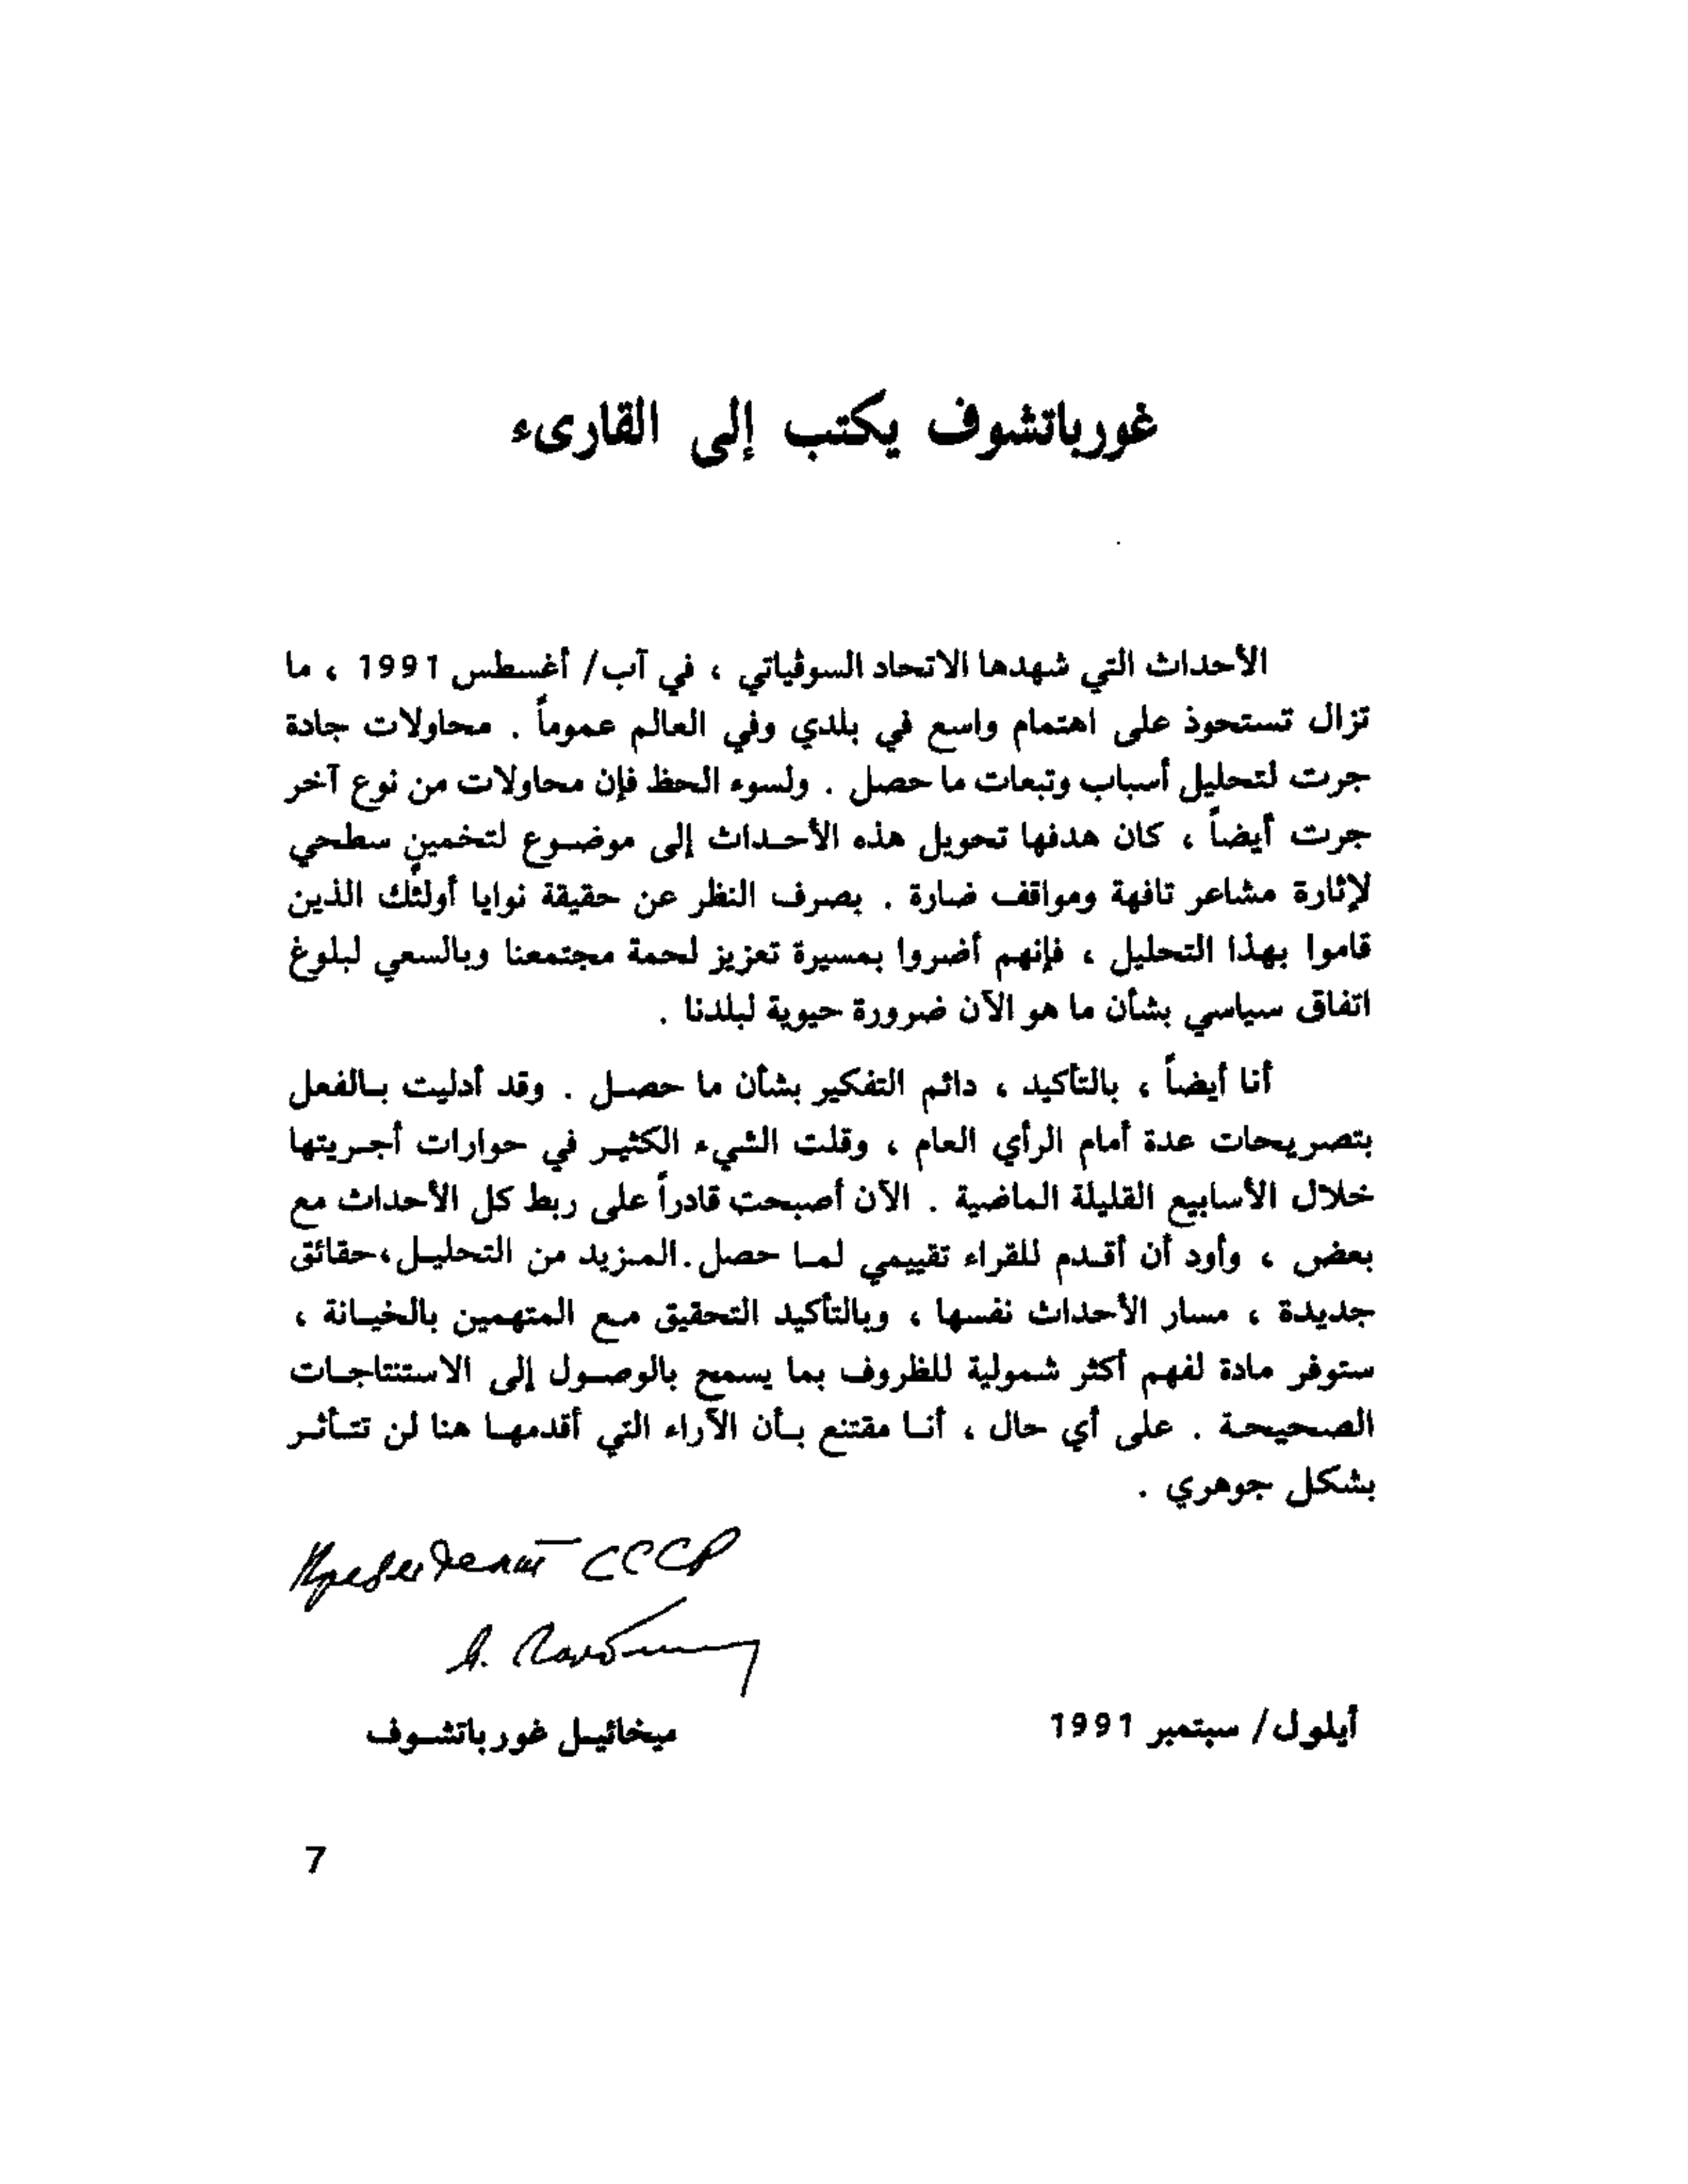 غورباتشوف يكتب إلى القارىء
الأحداث التي شهدها الاتحاد السوڤياتي ، في آب/ أغسطس 1991 ، ما
تزال تستحوذ على اهتمام واسع في بلدي وفي العالم عموماً . محاولات جادة
جرت لتحليل أسباب وتبعات ما حصل . ولسوء الحظ فإن محاولات من نوع آخر
جرت أيضاً ، كان هدفها تحويل هذه الأحـداث إلى موضـوع لتخمينٍ سطحي
لإثارة مشاعر تافهة ومواقف ضارة . بصرف النظر عن حقيقة نوايا أولئك الذين
قاموا بهذا التحليل ، فإنهم أضروا بمسيرة تعزيز لحمة مجتمعنا وبالسعي لبلوغ
اتفاق سياسي بشأن ما هو الآن ضرورة حيوية لبلدنا .
أنا أيضاً ، بالتأكيد ، دائم التفكير بشأن ما حصـل . وقد أدليت بـالفعل
بتصريحات عدة أمام الرأي العام ، وقلت الشيء الكثيـر في حوارات أجـريتها
خلال الأسابيع القليلة الماضية . الآن أصبحت قادراً على ربط كل الأحداث مع
بعض ، وأود أن أقـدم للقراء تقييمي لمـا حصل.المـزيد من التحليـل،حقائق
جديدة ، مسار الأحداث نفسها ، وبالتأكيد التحقيق مـع المتهمين بالخيـانة ،
ستوفر مادة لفهم أكثر شمولية للظروف بما يسمح بالوصـول إلى الاستنتاجـات
الصحيحـة . على أي حال ، أنـا مقتنع بـأن الآراء التي أقدمهـا هنا لن تتـأثـر
بشكل جوهري .
Президент СССР
ميخائيـل غورباتشـوف
أيلول/ سبتمبر 1991
7